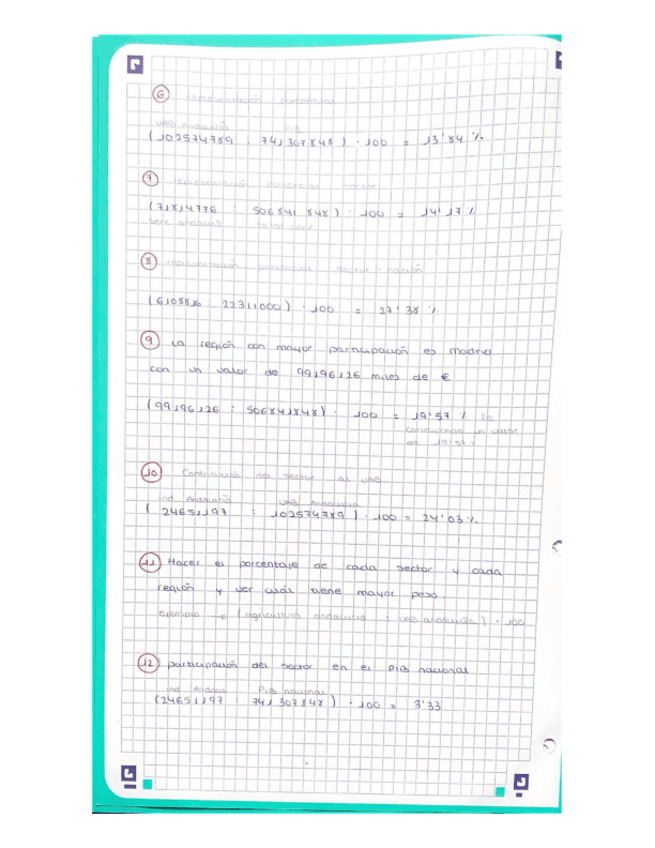 6 representación porcentual
VAB Andalucía PIB
(102574789 : 741307848) · 100 = 13'84 %
7 representación porcentual sector
(71814776 : 506841848) · 100 = 14'17 %
serv andaluc total serv
8 representación porcentual sector nación
(6108816 : 22311000) · 100 = 27'38 %
9 La región con mayor participación es madrid
con un valor de 99196126 miles de €
(99196126 : 506841848) · 100 = 19'57 %
con un valor
de 19'57 %
10 Contribución del sector al VAB
ind Andalucía VAB Andalucía
(24651197 : 102574789) · 100 = 24'03 %
11 Hacer el porcentaje de cada sector y cada
región y ver cuál tiene mayor peso
ejemplo → (agricultura andalucía : VAB andalucía) · 100
12 participación del sector en el PIB nacional
ind Andaluc PIB nacional
(24651197 : 741307848) · 100 = 3'33